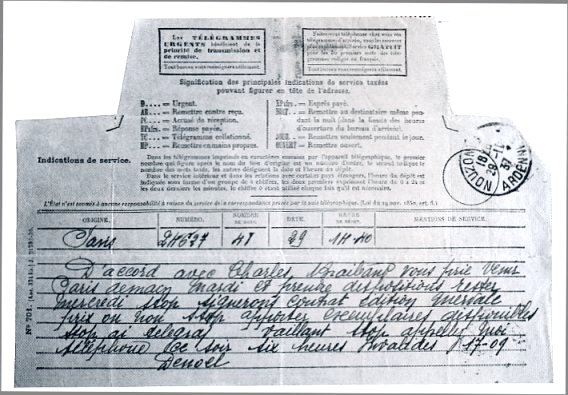 Les TÉLÉGRAMMES
URGENTS bénéficient de la
priorité de transmission et
de remise.
Tout bureau vous renseignera utilement.
Faites-vous téléphoner chez vous vos
télégrammes d'arrivée, vous les aurez
plus rapidement. Service GRATUIT
pour les 50 premiers mots des télé-
grammes rédigés en français.
Tout bureau vous renseignera utilement.
Signification des principales indications de service taxées
pouvant figurer en tête de l'adresse.
D.... = Urgent.
AR.... = Remettre contre reçu.
PC.... = Accusé de réception.
RPx.... = Réponse payée.
TC.... = Télégramme collationné.
MP.... = Remettre en mains propres.
XPx.... = Exprès payé.
NUIT.... = Remettre au destinataire même pen-
dant la nuit (dans la limite des heures
d'ouverture du bureau d'arrivée).
JOUR.... = Remettre seulement pendant le jour.
OUVERT = Remettre ouvert.
Indications de service.
Dans les télégrammes imprimés en caractères romains par l'appareil télégraphique, le premier
nombre qui figure après le nom du lieu d'origine est un numéro d'ordre, le second indique le
nombre des mots taxés, les autres désignent la date et l'heure de dépôt.
Dans le service intérieur et dans les relations avec certains pays étrangers, l'heure de dépôt est
indiquée sous forme d'un groupe de 4 chiffres, les deux premiers exprimant l'heure de 0 à 24 et
les deux derniers les minutes
NOUZON
18
29-11
37
ARDENN
L'État n'est soumis à aucune responsabilité à raison du service de la correspondance privée par la voie télégraphique. (Loi du 29 nov. 1850, art. 6.)
ORIGINE. NUMÉRO. NOMBRE DE MOTS. DATE. HEURE DE DÉPÔT. MENTIONS DE SERVICE.
Paris 24637 48 29 14-40
N° 701.
D'accord avec Charles Braibant vous prie venir
Paris demain mardi et prendre dispositions rester
mercredi stop signerons contrat édition Mervale
prix ou non stop apporter exemplaires disponibles
stop ai Vaillant stop appelez moi
téléphone ce soir six heures Invalides 17-09
Denoël